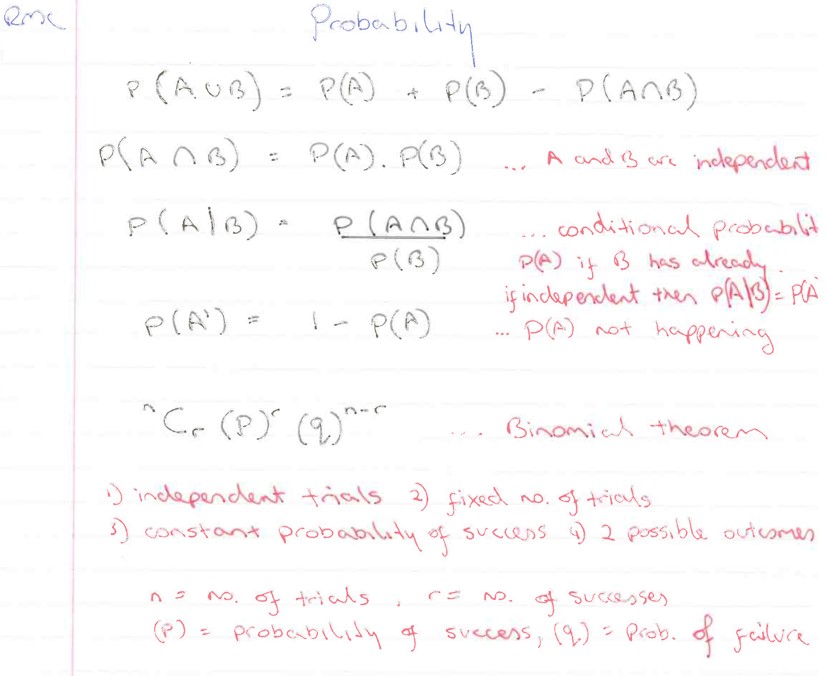 RMC
Probability
P(A∪B) = P(A) + P(B) - P(A∩B)
P(A∩B) = P(A). P(B) ... A and B are independent
P(A|B) = P(A∩B) / P(B) ... conditional probabilit
P(A) if B has already.
if independent then P(A|B) = P(A
P(A') = 1 - P(A) ... P(A) not happening
ⁿCᵣ (P)ʳ (q)ⁿ⁻ʳ ... Binomial theorem
1) independent trials 2) fixed no. of trials
3) constant probability of success 4) 2 possible outcomes
n = no. of trials, r = no. of successes
(P) = probability of success, (q) = Prob. of failure